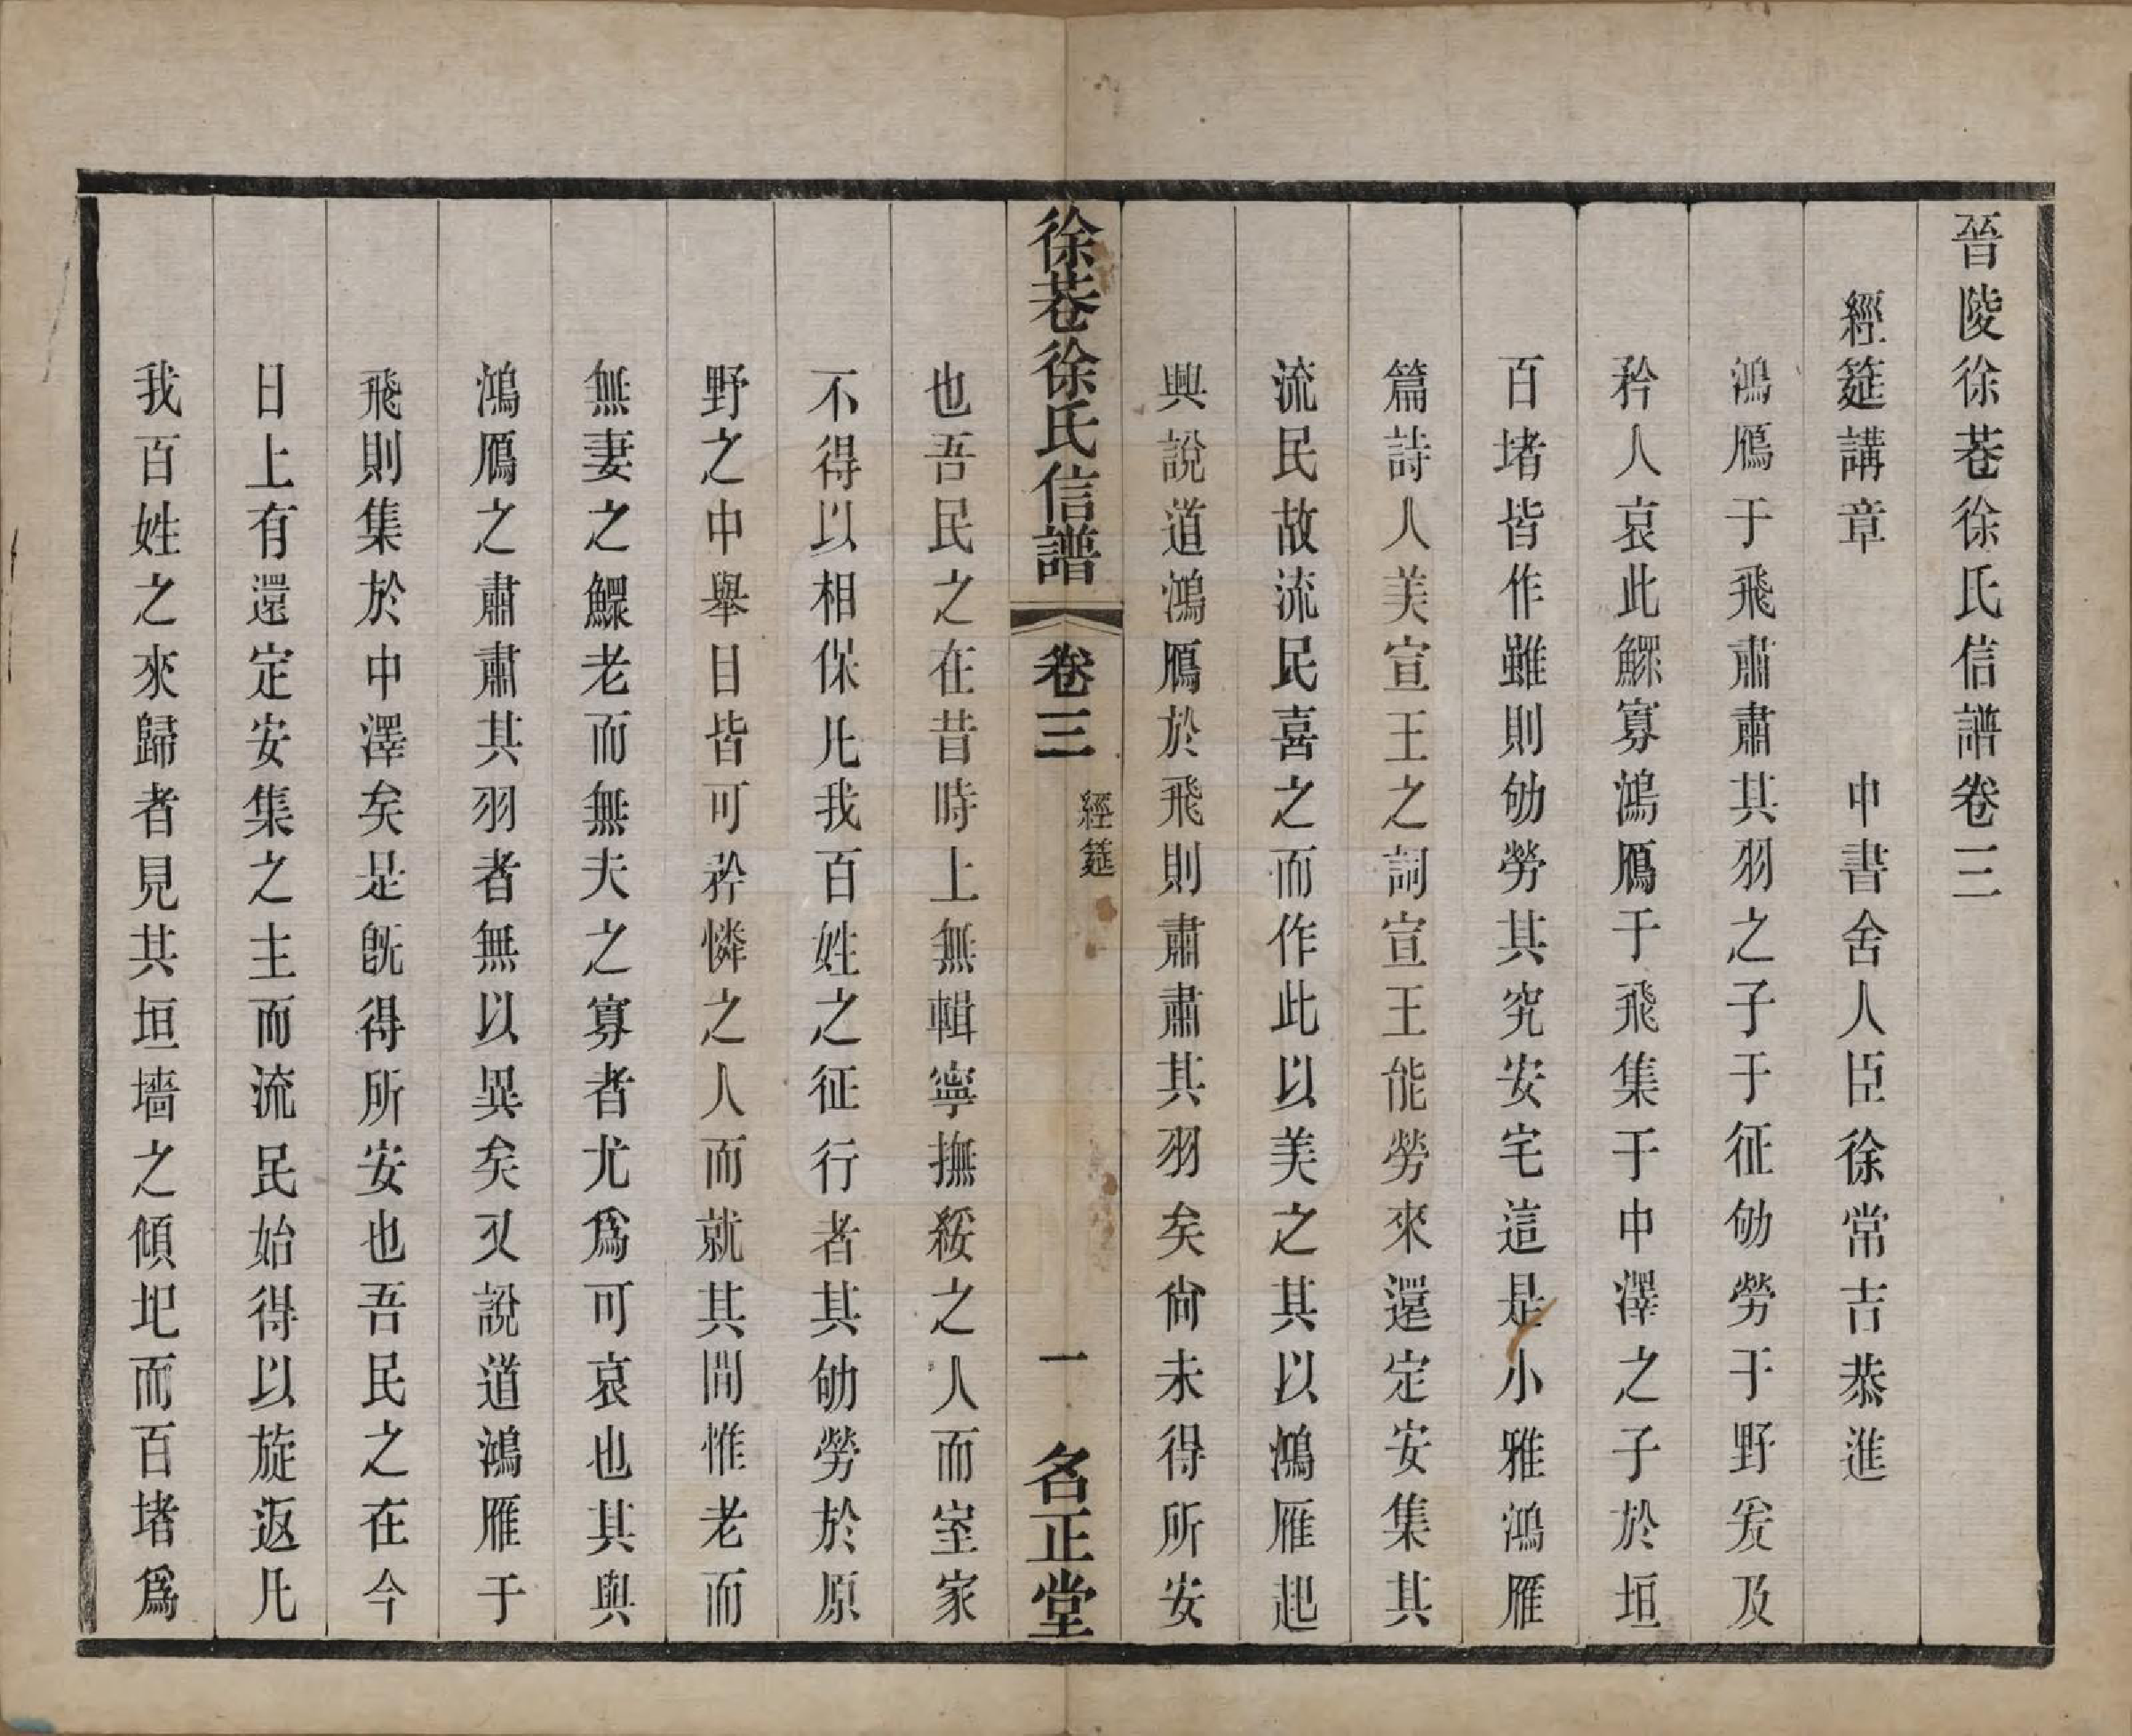 晉陵徐巷徐氏信譜卷三
經筵講章 中書舍人臣徐常吉恭進
鴻鴈于飛肅肅其羽之子于征劬勞于野爰及
矜人哀此鰥寡鴻鴈于飛集于中澤之子於垣
百堵皆作雖則劬勞其究安宅這是小雅鴻雁
篇詩人美宣王之詞宣王能勞來還定安集其
流民故流民喜之而作此以美之其以鴻雁起
興說道鴻鴈於飛則肅肅其羽矣尙未得所安
徐巷徐氏信譜 卷三 經筵 一 名正堂
也吾民之在昔時上無輯寧撫綏之人而室家
不得以相保凡我百姓之征行者其劬勞於原
野之中舉目皆可矜憐之人而就其間惟老而
無妻之鰥老而無夫之寡者尤爲可哀也其與
鴻鴈之肅肅其羽者無以異矣又說道鴻雁于
飛則集於中澤矣是旣得所安也吾民之在今
日上有還定安集之主而流民始得以旋返凡
我百姓之來歸者見其垣墻之傾圮而百堵爲